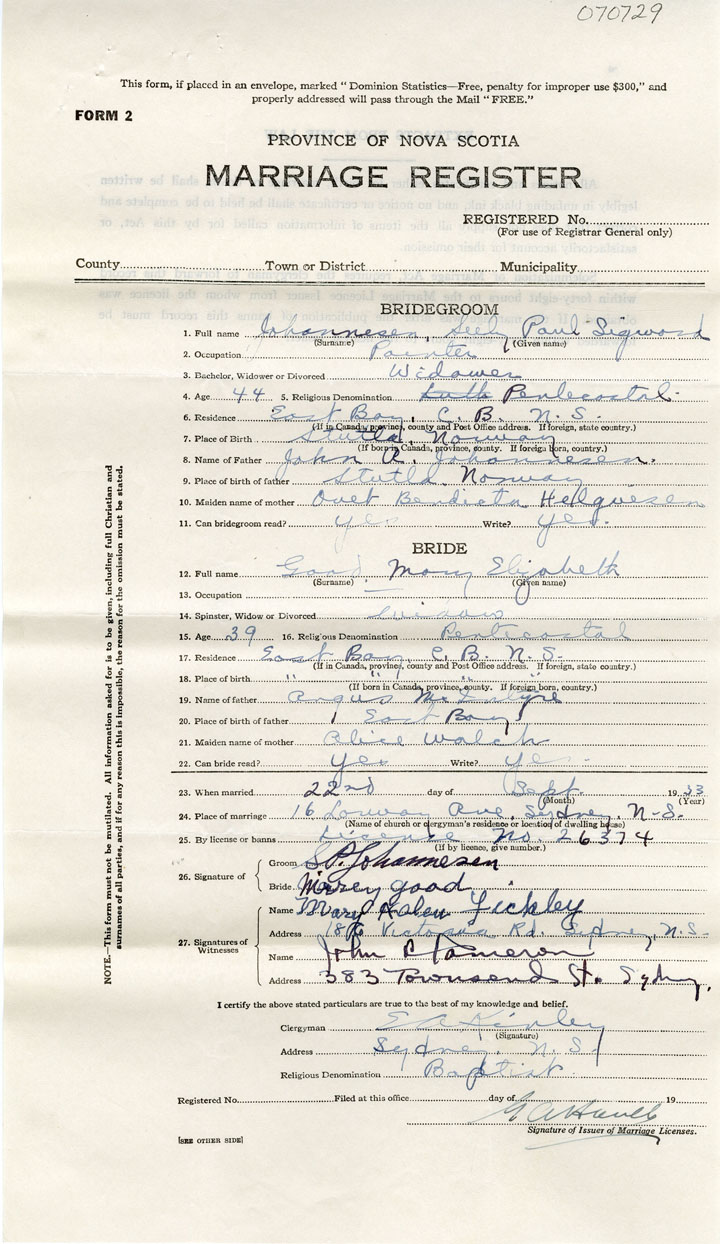 070729
This form, if placed in an envelope, marked "Dominion Statistics—Free, penalty for improper use $300," and
properly addressed will pass through the Mail "FREE."
FORM 2
PROVINCE OF NOVA SCOTIA
MARRIAGE REGISTER
REGISTERED No.
(For use of Registrar General only)
County Town or District Municipality
BRIDEGROOM
1. Full name Johannesen, Seely Paul Sigword
(Surname) (Given name)
2. Occupation Painter
3. Bachelor, Widower or Divorced Widower
4. Age 44 5. Religious Denomination Pentecostal
6. Residence East Bay, C. B. N. S.
(If in Canada, province, county and Post Office address. If foreign, state country.)
7. Place of Birth Norway
(If born in Canada, province, county. If foreign born, country.)
8. Name of Father John A. Johannesen.
9. Place of birth of father Norway
10. Maiden name of mother Helgvesen
11. Can bridegroom read? yes Write? yes.
BRIDE
12. Full name Good Mary Elizabeth
(Surname) (Given name)
13. Occupation —
14. Spinster, Widow or Divorced widow
15. Age 39 16. Religious Denomination Pentecostal
17. Residence East Bay, C. B. N. S.
(If in Canada, province, county and Post Office address. If foreign, state country.)
18. Place of birth " " " "
(If born in Canada, province, county. If foreign born, country.)
19. Name of father Angus McIntyre
20. Place of birth of father East Bay
21. Maiden name of mother Alice Walsh
22. Can bride read? yes Write? yes
23. When married 22nd day of Sept. 1933
(Month) (Year)
24. Place of marriage 16 Ave, Sydney, N-S.
(Name of church or clergyman's residence or location of dwelling house)
25. By license or banns License No. 26374
(If by licence, give number.)
26. Signature of Groom S. P. Johannesen
Bride Mary good
27. Signatures of Witnesses Name Mary Helen
Address Victoria Rd. Sydney, N.S.
Name John Cameron
Address 383 Townsend St. Sydney.
I certify the above stated particulars are true to the best of my knowledge and belief.
Clergyman
(Signature)
Address Sydney, N. S.
Religious Denomination Baptist
Registered No. Filed at this office day of 19
Signature of Issuer of Marriage Licenses.
[SEE OTHER SIDE]
NOTE.—This form must not be mutilated. All information asked for is to be given, including full Christian and
surnames of all parties, and if for any reason this is impossible, the reason for the omission must be stated.